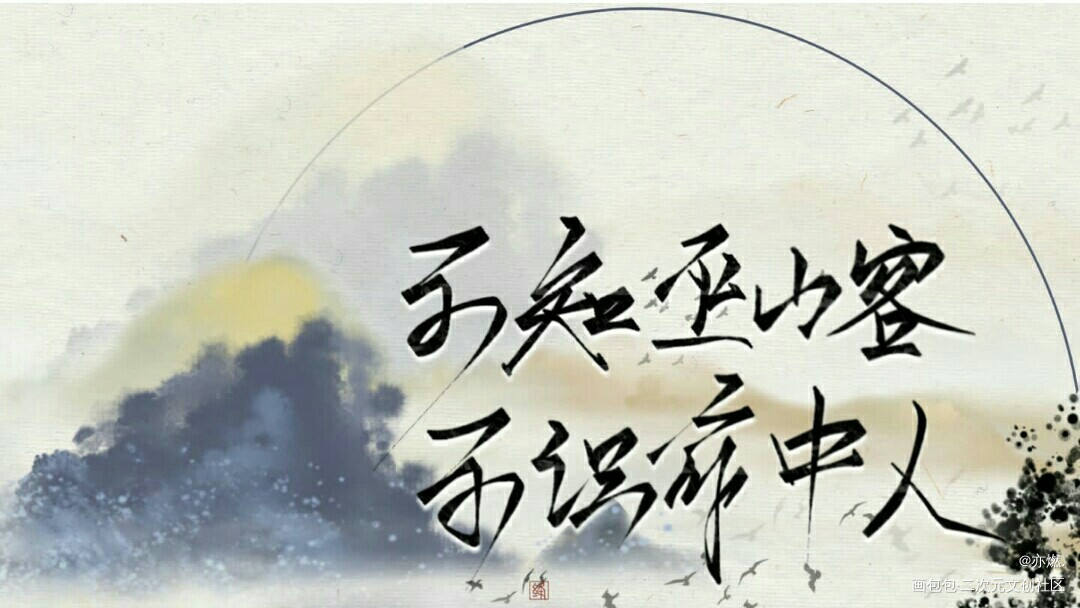 不知巫山客
不识
中人
@亦燃.
画包包·二次元文创社区